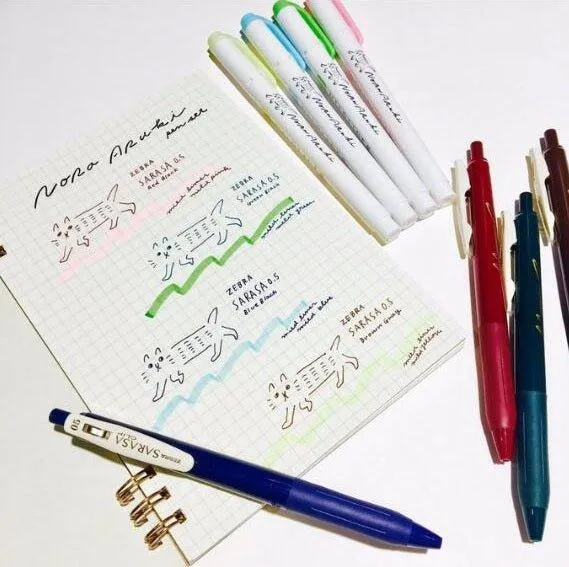 NORA ARUKI
pen set
ZEBRA
SARASA 0.5
Red Black
mild liner
mild pink
ZEBRA
SARASA 0.5
Green Black
mild liner
mild green
ZEBRA
SARASA 0.5
Blue Black
mild liner
mild blue
ZEBRA
SARASA 0.5
Brown Gray
mild liner
mild yellow
NORA ARUKI
NORA ARUKI
NORA ARUKI
NORA ARUKI
0.5
SARASA
CLIP
ZEBRA